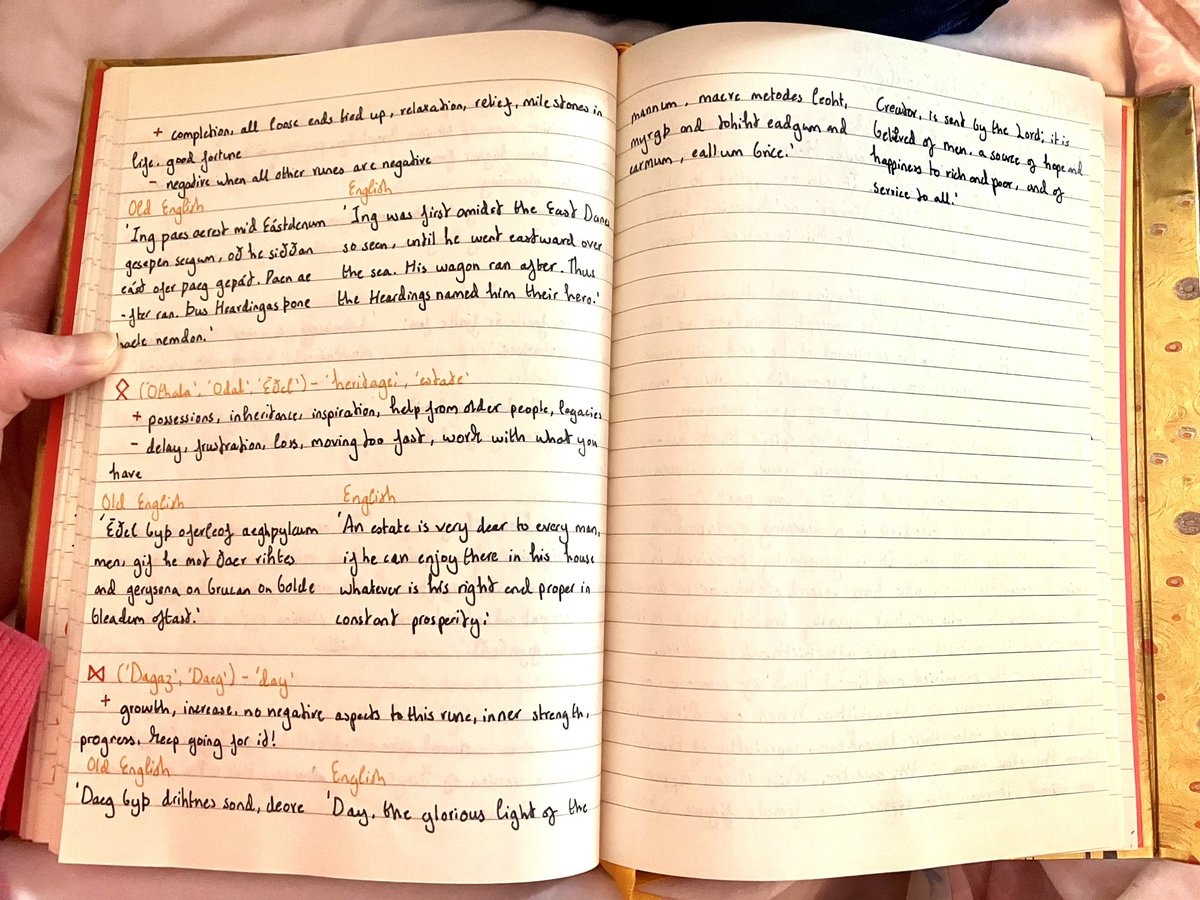 + completion, all loose ends tied up, relaxation, relief, milestones in
life, good fortune
- negative when all other runes are negative
Old English
'Ing paes aerest mid Eástdenum
gesepen secgum, oð he siððan
eást ofer paeg gepát. Paen ae
-fter ran. Dus Heardingas pone
haele nemdon.'
English
'Ing was first amidst the East Danes
so seen, until he went eastward over
the sea. His wagon ran after. Thus
the Heardings named him their hero.'
ᛟ ('Othala', 'Odal', 'Ēðel') - 'heritage', 'estate'
+ possessions, inheritance, inspiration, help from older people, legacies
- delay, frustration, loss, moving too fast, work with what you
have
Old English
'Ēðel byþ oferleof aeghpylcum
men, gif he mot ðaer rihtes
and gerysena on brucan on bolde
bleadum oftast.'
English
'An estate is very dear to every man,
if he can enjoy there in his house
whatever is his right and proper in
constant prosperity.'
ᛞ ('Dagaz', 'Daeg') - 'day'
+ growth, increase, no negative aspects to this rune, inner strength,
progress, keep going for it!
Old English
'Daeg byþ drihtnes sond, deore
English
'Day, the glorious light of the
mannum, maere metodes leoht,
myrgþ and tohiht eadgum and
earmum, eallum brice.'
Creator, is sent by the Lord; it is
beloved of men, a source of hope and
happiness to rich and poor, and of
service to all.'